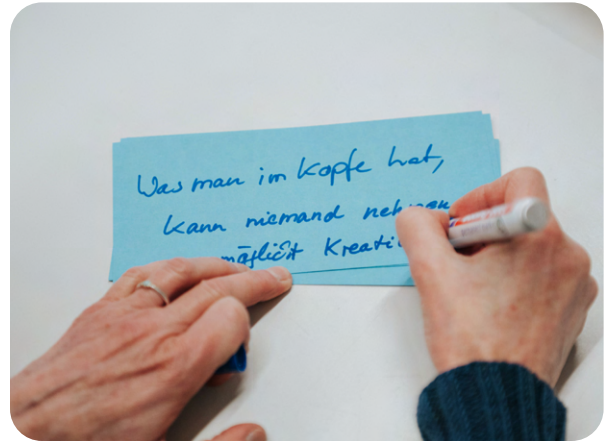 Was man im Kopfe hat,
kann niemand nehmen
möglicht Kreati